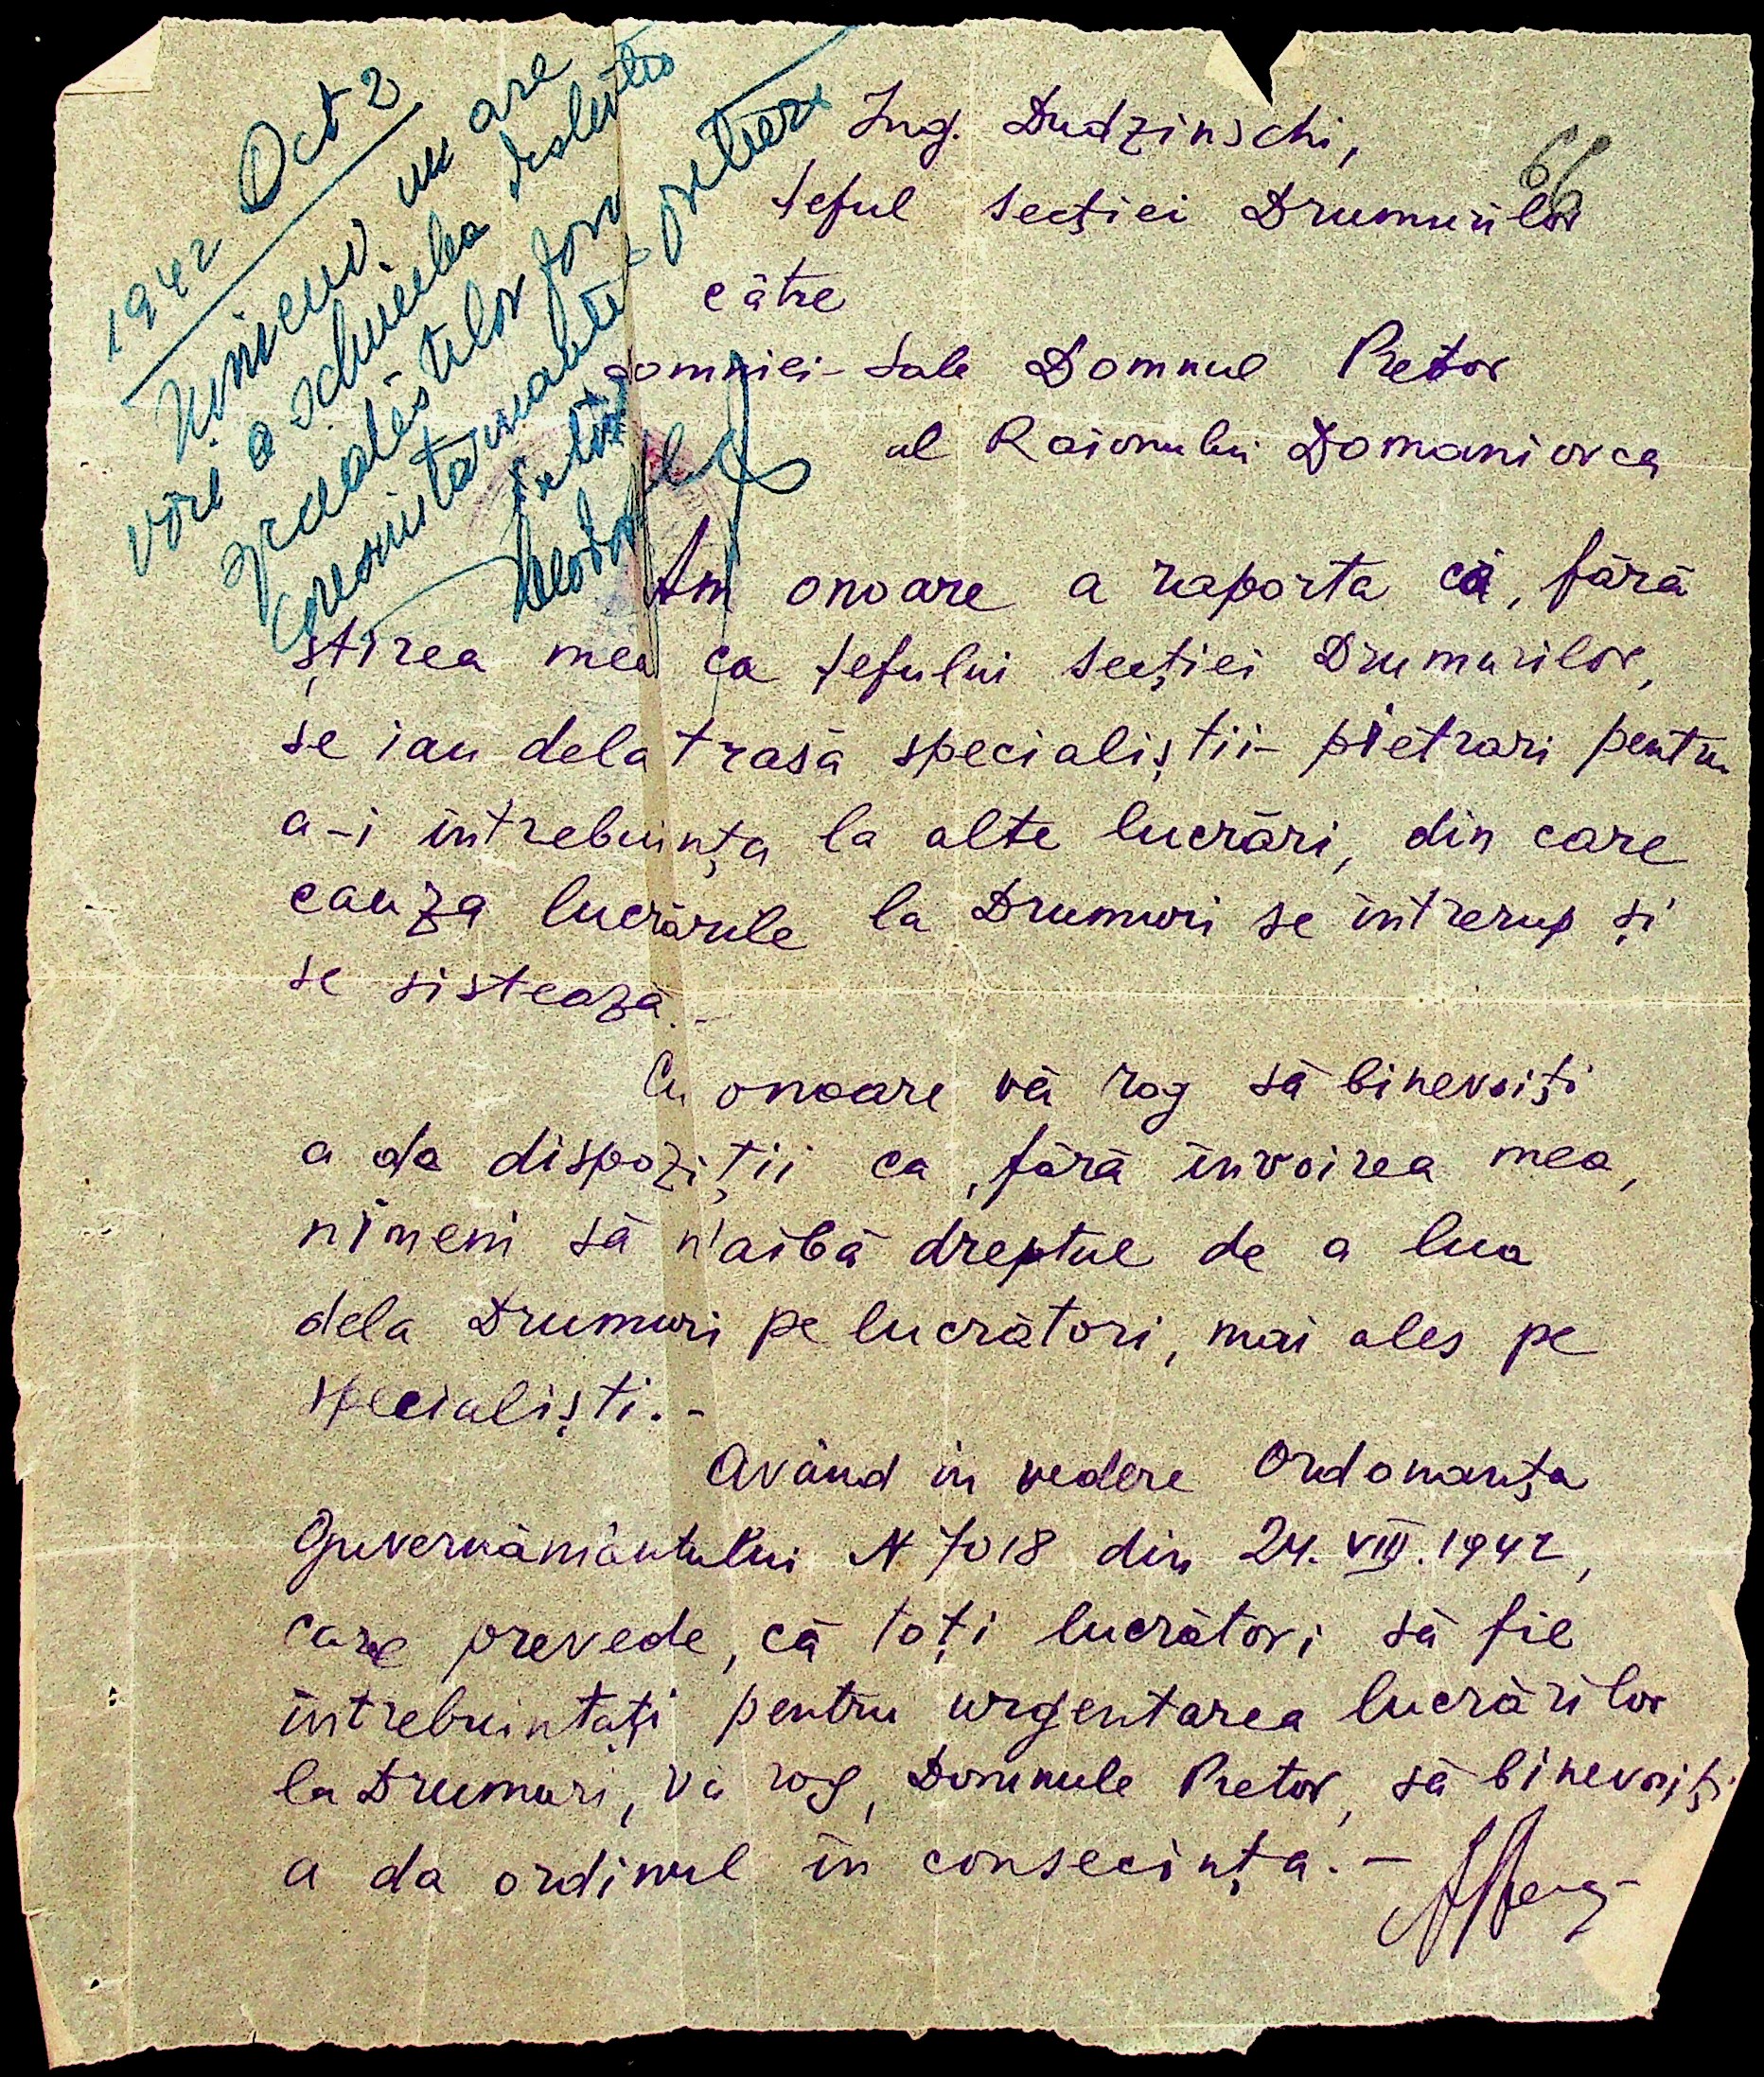 1942 Oct 2
Nimeni nu are
voie a schimba
specialistilor fara
pretura
Pretor
66
Ing. Dudzinschi,
șeful secției Drumurilor
către
Domniei-sale Domnul Pretor
al Raionului Domaniovca
Am onoare a raporta că, fără
știrea mea ca șefului secției Drumurilor,
se iau dela trasă specialiștii-pietrari pentru
a-i întrebuința la alte lucrări, din care
cauza lucrările la Drumuri se intrerup și
se sistează.-
Cu onoare vă rog să binevoiți
a da dispoziții ca, fără invoirea mea,
nimeni să n'aibă dreptul de a lua
dela Drumuri pe lucrători, mai ales pe
specialiști.-
Având in vedere Ordonanța
Guvernământului N 7018 din 24.VIII.1942,
care prevede, că toți lucrători să fie
intrebuintați pentru urgentarea lucrărilor
la Drumuri, vă rog, Domnule Pretor, să binevoiți
a da ordinul in consecința.-